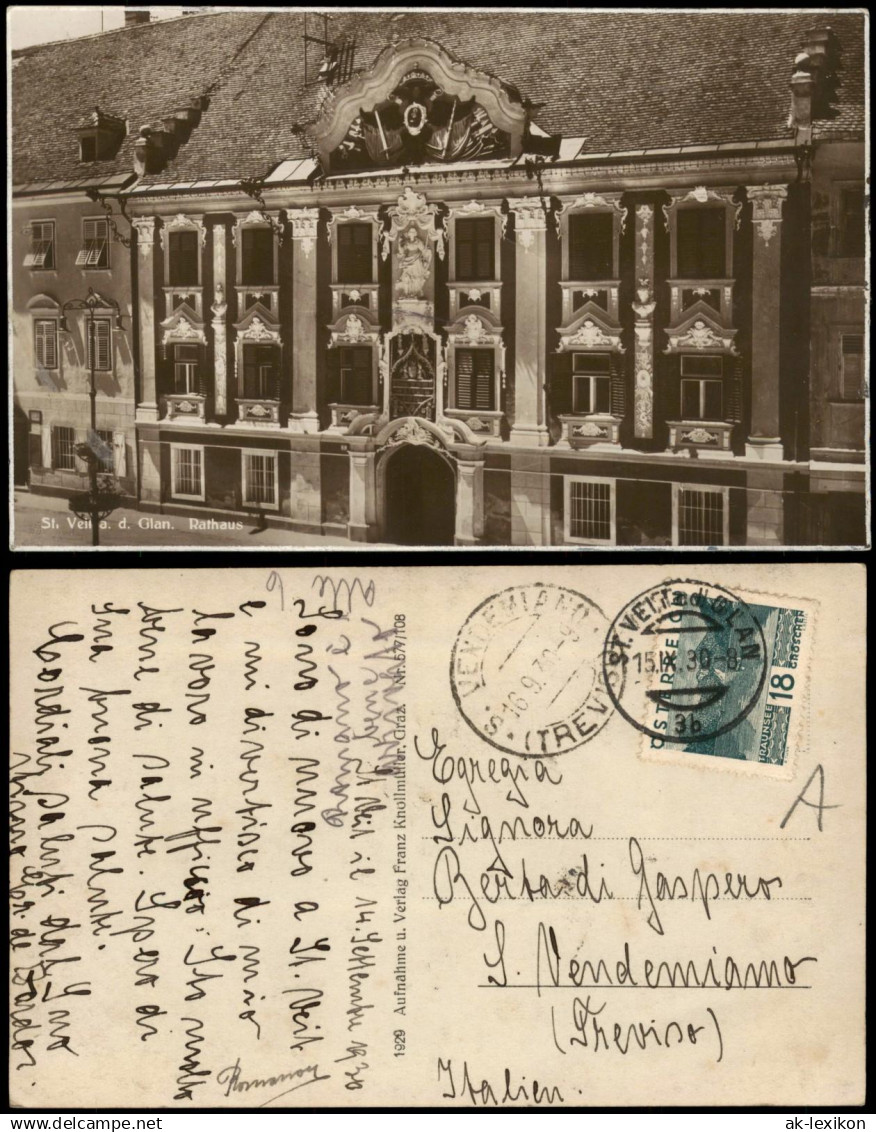 St. Veit a. d. Glan. Rathaus
St. Veit il 14. Settembre 1930
Sono di nuovo a St. Veit
e mi divertisco di mio
lavoro in ufficio: Sto molto
bene di salute. Spero di
Sua buona salute.
Cordiali saluti dal Suo
1929 Aufnahme u. Verlag Franz Knollmüller, Graz. Nr. 577/108
VENDEMIANO
16.9.30
(TREVISO)
ST. VEIT a.d. GLAN
15.IX.30-8
3b
ÖSTERREICH
18
GROSCHEN
TRAUNSEE
A
Egregia
Signora
Berta di Gaspero
S. Vendemiamo
(Treviso)
Italien.
ak-lexikon.com